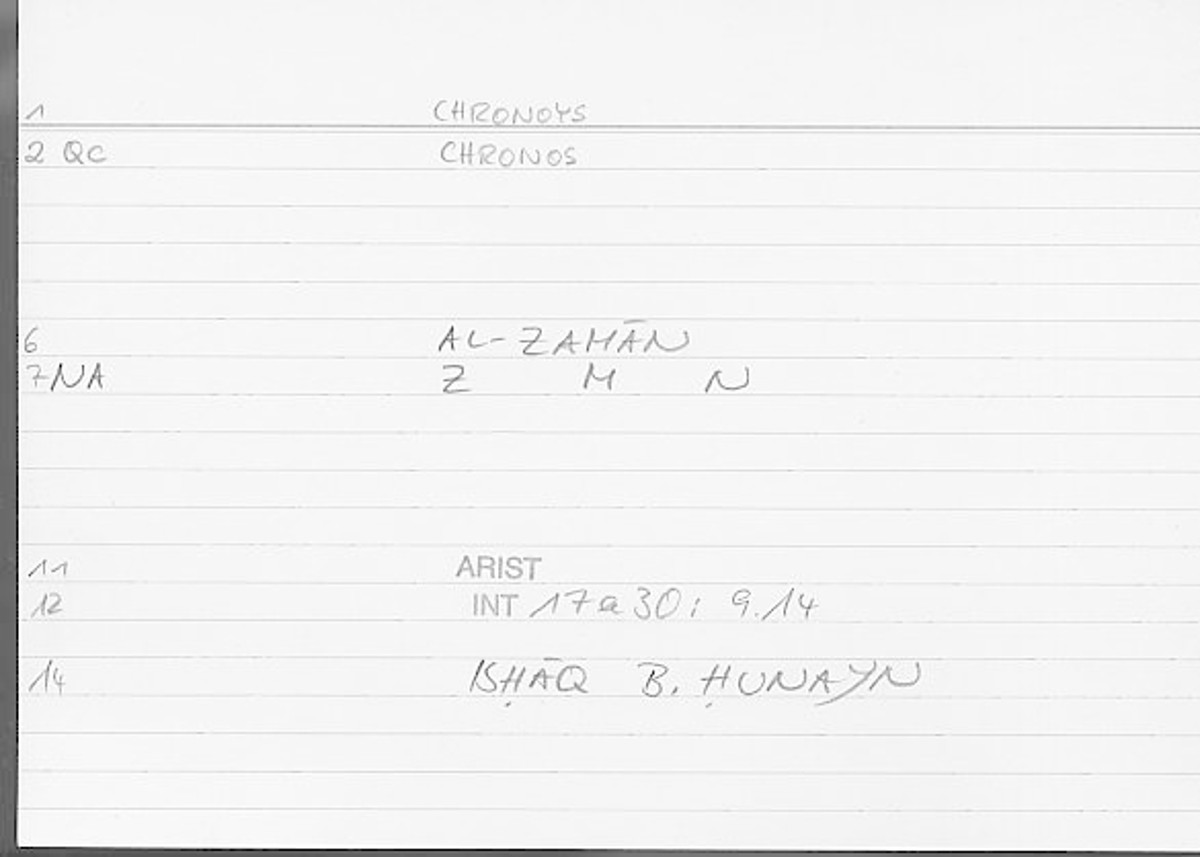 1 CHRONOYS
2 QC CHRONOS
6 AL-ZAMĀN
7 NA Z M N
11 ARIST
12 INT 17a30; 9.14
14 ISḤĀQ B. ḤUNAYN